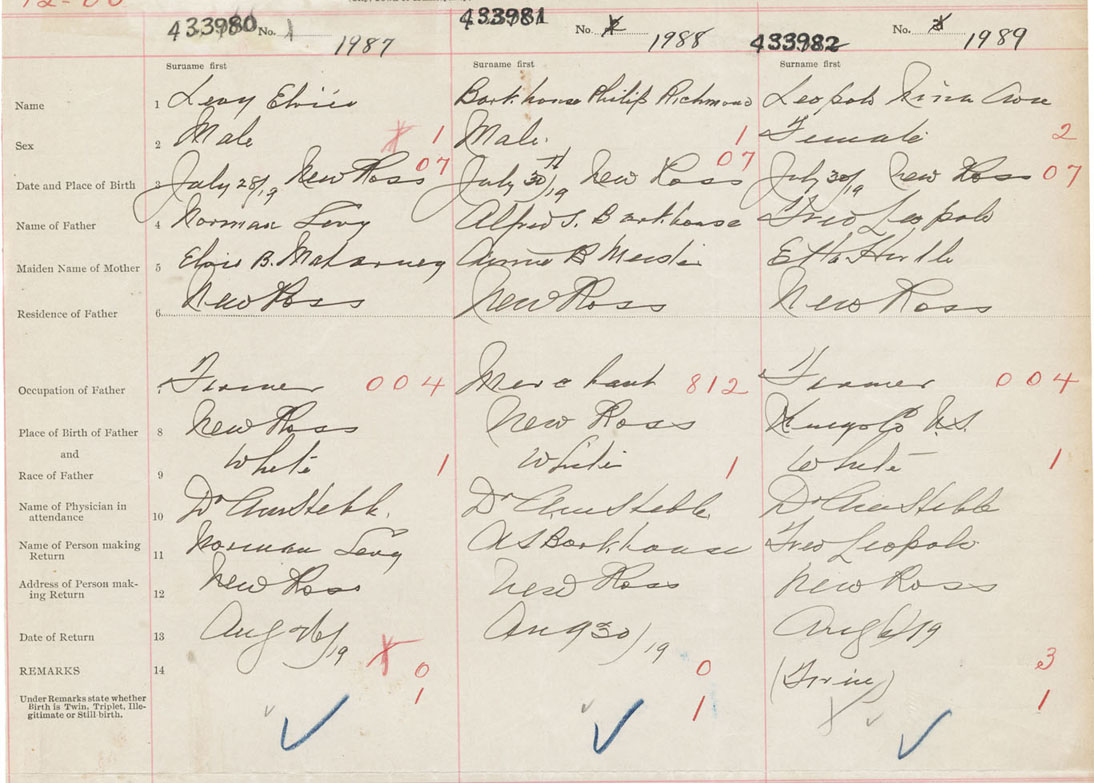 433980 No. 1 1987 433981 No. 2 1988 433982 No. 3 1989
Surname first Surname first Surname first
Name 1 Levy Barkhouse Philip Richmond Leopold Nina
Sex 2 Male 1 Male 1 Female 2
Date and Place of Birth 3 July 28/19 New Ross 07 July 30th/19 New Ross 07 July 30/19 New Ross 07
Name of Father 4 Norman Levy Alfred S. Barkhouse Fred Leopold
Maiden Name of Mother 5 Elsie B. Annie B Meister Etta Hiltz
Residence of Father 6 New Ross New Ross New Ross
Occupation of Father 7 Farmer 004 Merchant 812 Farmer 004
Place of Birth of Father 8 New Ross New Ross Kings Co N.S.
and
Race of Father 9 White 1 White 1 White 1
Name of Physician in
attendance 10 Dr Dr Dr
Name of Person making
Return 11 Norman Levy A S Barkhouse Fred Leopold
Address of Person mak-
ing Return 12 New Ross New Ross New Ross
Date of Return 13 Aug 26/19 Aug 30/19 Aug 6/19
REMARKS 14 0 0 (Twin) 3
Under Remarks state whether
Birth is Twin, Triplet, Ille-
gitimate or Still birth. 1 1 1